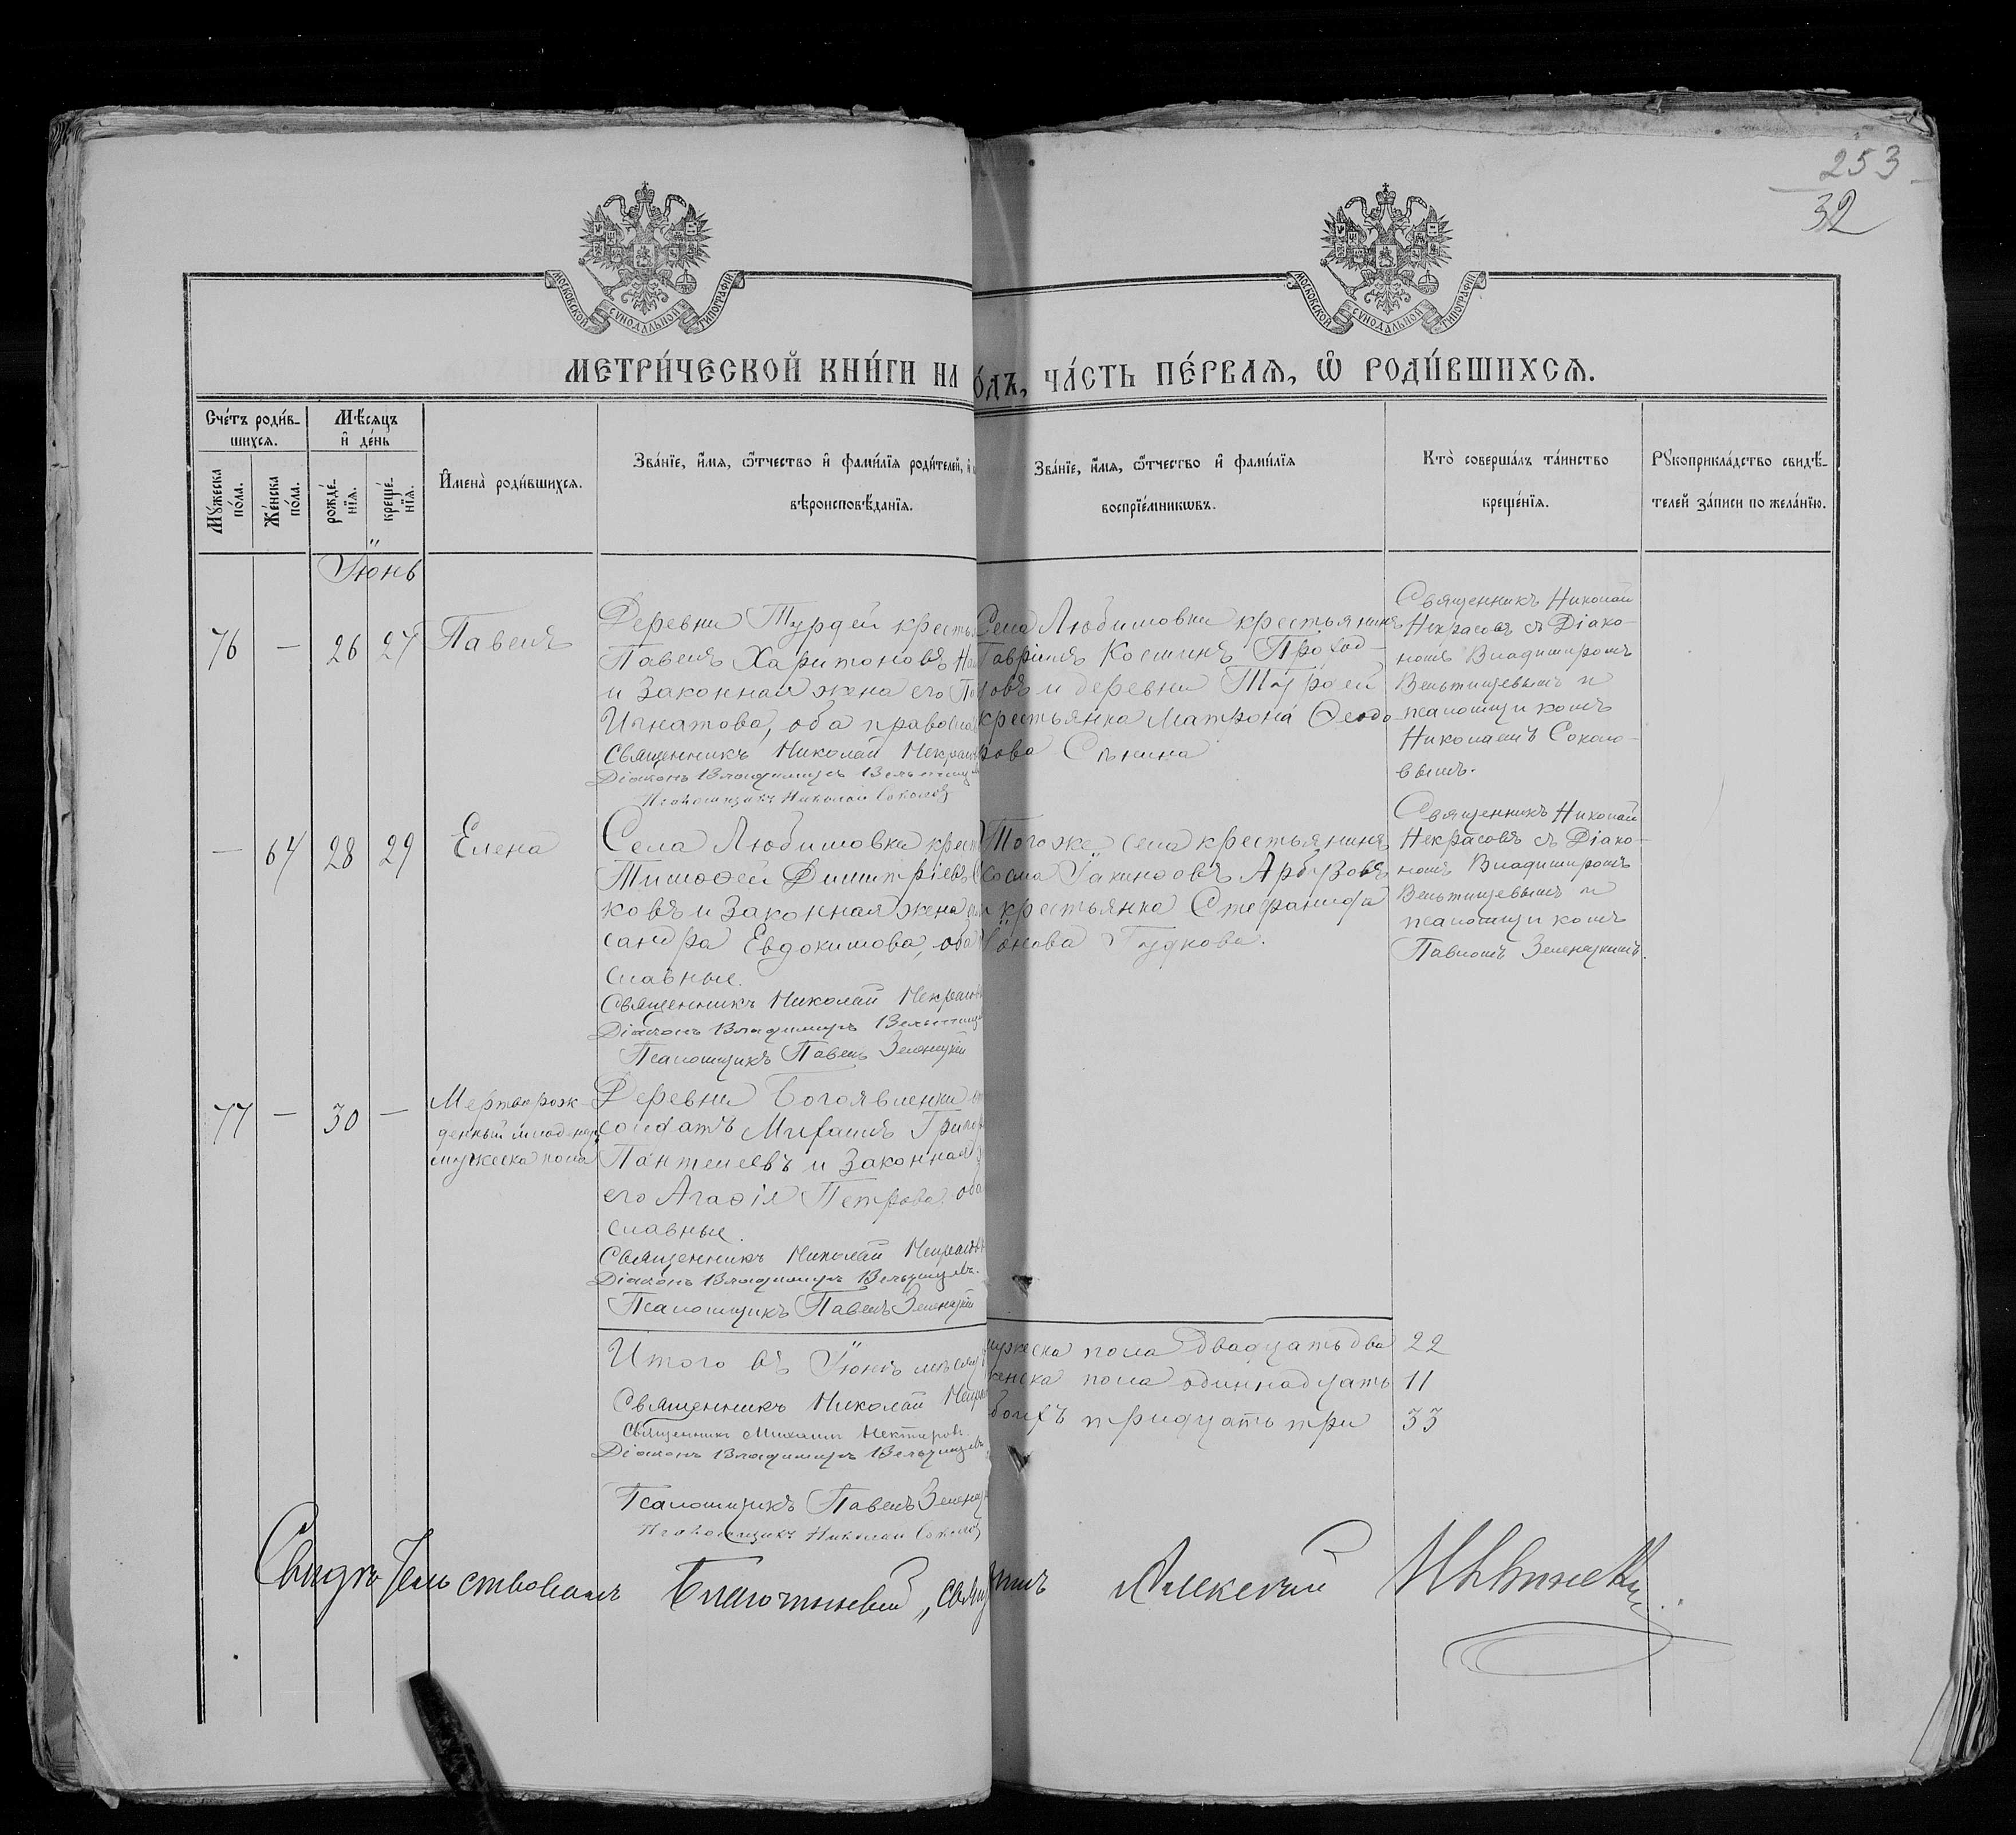 253
32
МОСКОВСКОЙ СѴНОДАЛЬНОЙ ТИПОГРАФІИ
МОСКОВСКОЙ СѴНОДАЛЬНОЙ ТИПОГРАФІИ
МЕТРИ́ЧЕСКОЙ КНИ́ГИ НА
ОДЪ, ЧА́СТЬ ПЕ́РВАѦ, Ѽ РОДИ́ВШИХСѦ.
Сче́тъ роди́в-
шихсѧ.
Мѣ́сѧцъ
и де́нь
Мꙋ́жеска по́ла.
Же́нска по́ла.
рожде́-
нїѧ.
креще́-
нїѧ.
Имена̀ роди́вшихсѧ.
Зва́нїе, и́мѧ, ѻ҆́тчество и фами́лїѧ роди́телей, и
вѣроисповѣ́данїѧ.
Зва́нїе, и́мѧ, ѻ҆́тчество и фами́лїѧ
воспрїе́мникѡвъ.
Кто̀ соверша́лъ та́инство
креще́нїѧ.
Рꙋкоприкла́дство свидѣ́-
телей за́писи по жела́нїю.
Іюнь
76 — 26 27 Павелъ
Деревни Турдей кресть
Павелъ Харитоновъ
и законная жена его
Игнатова, оба правосла
Священникъ Николай Некрасов
Діаконъ Владимиръ
Псаломщикъ Николай Соколов
Села Любимовки крестьянинъ
Гавріилъ Косминъ
и деревни Турдей
крестьянка Матрона Ѳеодо-
рова
Священникъ Николай
Некрасовъ съ Діако-
номъ Владимиромъ
Вельтищевымъ и
псаломщикомъ
Николаемъ Соколо-
вымъ.
— 64 28 29 Елена
Села Любимовки крест
Тимоѳей Димитріевъ
ковъ и законная жена
сандра Евдокимова, оба
славные.
Священникъ Николай Некрасов
Діаконъ Владимиръ
Псаломщикъ Павелъ Зеленецкій
Тогоже села крестьянинъ
Косма Іакинѳовъ Арбузовъ
и крестьянка Стефанида
Гудкова.
Священникъ Николай
Некрасовъ съ Діако-
номъ Владимиромъ
Вельтищевымъ и
псаломщикомъ
Павломъ Зеленецкимъ.
77 — 30 —
Мертворож-
денный младенец
мужеска пола
Деревни Богоявленки
солдатъ Михаилъ Григор
Пантелеевъ и законная
его Агаѳія Петрова, оба
славные.
Священникъ Николай Некрасовъ
Діаконъ Владимиръ
Псаломщикъ Павелъ Зеленецкій
Итого въ Іюнѣ мѣсяц
мужеска пола двадцать два 22
женска пола одиннадцать 11
обоихъ тридцать три 33
Священникъ Николай
Священникъ Михаилъ Нектаровъ
Діаконъ Владимиръ
Псаломщикъ Павелъ
Псаломщикъ Николай Соколов
Свидѣтельствовалъ Благочинный, Алексій